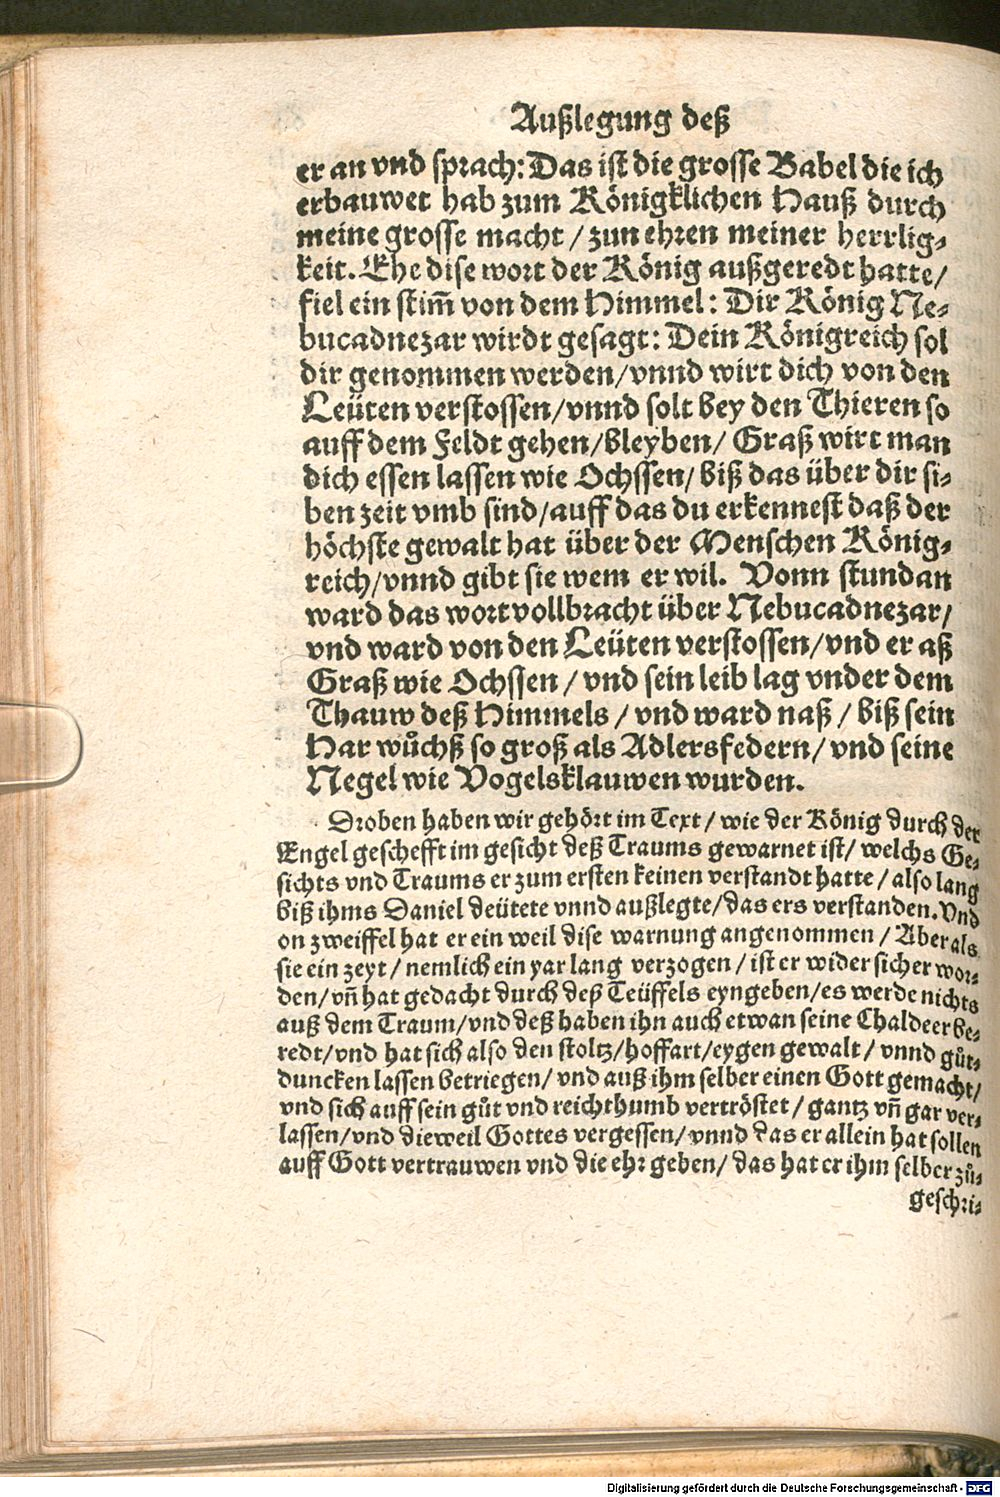 Außlegung deß
er an vnd sprach: Das ist die grosse Babel die ich
erbauwet hab zum Königklichen Hauß durch
meine grosse macht / zun ehren meiner herrlig⸗
keit. Ehe dise wort der König außgeredt hatte /
fiel ein stim̃ von dem Himmel: Dir König Ne⸗
bucadnezar wirdt gesagt: Dein Königreich sol
dir genommen werden / vnnd wirt dich von den
Leüten verstossen / vnnd solt bey den Thieren so
auff dem Feldt gehen / bleyben / Graß wirt man
dich essen lassen wie Ochssen / biß das über dir si⸗
ben zeit vmb sind / auff das du erkennest daß der
höchste gewalt hat über der Menschen König⸗
reich / vnnd gibt sie wem er wil. Vonn stundan
ward das wort vollbracht über Nebucadnezar /
vnd ward von den Leüten verstossen / vnd er aß
Graß wie Ochssen / vnd sein leib lag vnder dem
Thauw deß Himmels / vnd ward naß / biß sein
Har wuͦchß so groß als Adlersfedern / vnd seine
Negel wie Vogelsklauwen wurden.
Droben haben wir gehört im Text / wie der König durch der
Engel geschefft im gesicht deß Traums gewarnet ist / welchs Ge⸗
sichts vnd Traums er zum ersten keinen verstandt hatte / also lang
biß ihms Daniel deütete vnnd außlegte / das ers verstanden. Vnd
on zweiffel hat er ein weil dise warnung angenommen / Aber als
sie ein zeyt / nemlich ein yar lang verzogen / ist er wider sicher wor⸗
den / vñ hat gedacht durch deß Teüffels eyngeben / es werde nichts
auß dem Traum / vnd deß haben ihn auch etwan seine Chaldeer be⸗
redt / vnd hat sich also den stoltz / hoffart / eygen gewalt / vnnd guͦt⸗
duncken lassen betriegen / vnd auß ihm selber einen Gott gemacht /
vnd sich auff sein guͦt vnd reichthumb vertröstet / gantz vñ gar ver⸗
lassen / vnd dieweil Gottes vergessen / vnnd das er allein hat sollen
auff Gott vertrauwen vnd die ehr geben / das hat er ihm selber zuͦ⸗
geschri⸗
Digitalisierung gefördert durch die Deutsche Forschungsgemeinschaft - DFG